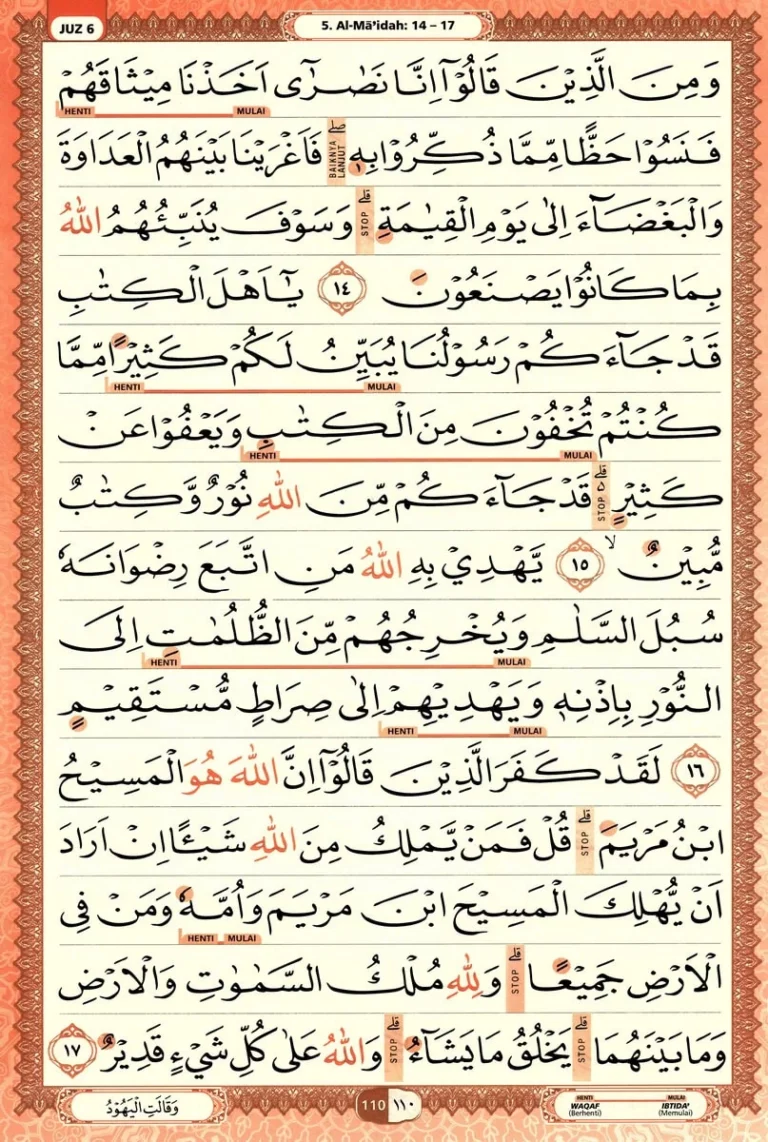 JUZ 6
5. Al-Mā'idah: 14 – 17
وَمِنَ الَّذِيْنَ قَالُوْٓا اِنَّا نَصٰرٰٓى اَخَذْنَا مِيْثَاقَهُمْ
HENTI MULAI
فَنَسُوْا حَظًّا مِّمَّا ذُكِّرُوْا بِهٖۖ فَاَغْرَيْنَا بَيْنَهُمُ الْعَدَاوَةَ
BAIKNYA LANJUT
وَالْبَغْضَاۤءَ اِلٰى يَوْمِ الْقِيٰمَةِۗ وَسَوْفَ يُنَبِّئُهُمُ اللّٰهُ
STOP
بِمَا كَانُوْا يَصْنَعُوْنَ ١٤ يٰٓاَهْلَ الْكِتٰبِ
قَدْ جَاۤءَكُمْ رَسُوْلُنَا يُبَيِّنُ لَكُمْ كَثِيْرًا مِّمَّا
HENTI MULAI
كُنْتُمْ تُخْفُوْنَ مِنَ الْكِتٰبِ وَيَعْفُوْا عَنْ
HENTI MULAI
كَثِيْرٍۗ قَدْ جَاۤءَكُمْ مِّنَ اللّٰهِ نُوْرٌ وَّكِتٰبٌ
STOP
مُّبِيْنٌۙ ١٥ يَّهْدِيْ بِهِ اللّٰهُ مَنِ اتَّبَعَ رِضْوَانَهٗ
سُبُلَ السَّلٰمِ وَيُخْرِجُهُمْ مِّنَ الظُّلُمٰتِ اِلَى
HENTI MULAI
النُّوْرِ بِاِذْنِهٖ وَيَهْدِيْهِمْ اِلٰى صِرَاطٍ مُّسْتَقِيْمٍ
HENTI MULAI
١٦ لَقَدْ كَفَرَ الَّذِيْنَ قَالُوْٓا اِنَّ اللّٰهَ هُوَ الْمَسِيْحُ
ابْنُ مَرْيَمَۗ قُلْ فَمَنْ يَّمْلِكُ مِنَ اللّٰهِ شَيْـًٔا اِنْ اَرَادَ
STOP
اَنْ يُّهْلِكَ الْمَسِيْحَ ابْنَ مَرْيَمَ وَاُمَّهٗ وَمَنْ فِى
HENTI MULAI
الْاَرْضِ جَمِيْعًاۗ وَلِلّٰهِ مُلْكُ السَّمٰوٰتِ وَالْاَرْضِ
STOP
وَمَا بَيْنَهُمَاۗ يَخْلُقُ مَا يَشَاۤءُۗ وَاللّٰهُ عَلٰى كُلِّ شَيْءٍ قَدِيْرٌ ١٧
STOP STOP
وَقَالَتِ الْيَهُوْدُ
110 ١١٠
HENTI MULAI
WAQAF IBTIDA'
(Berhenti) (Memulai)